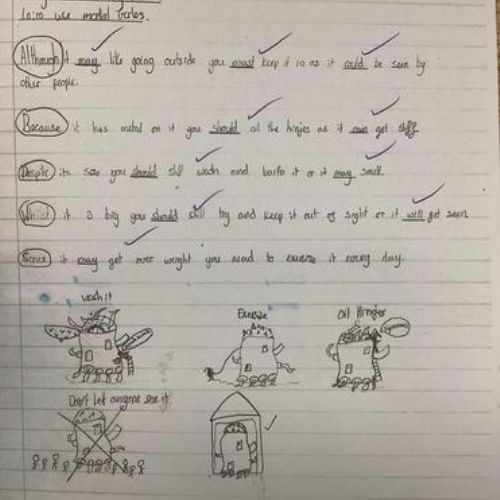 to use modal verbs.
Although it may like going outside you must keep it in as it could be seen by
other people.
Because it has metal on it you should oil the hinjes as it can get stiff
Despite its size you should still wash and it or it may smell.
Whilst it is big you should still try and keep it out of sight or it will get seen
Since it may get over weight you need to exersise it every day.
wash it
Exersise
oil Hinjes
Don't let anyone see it